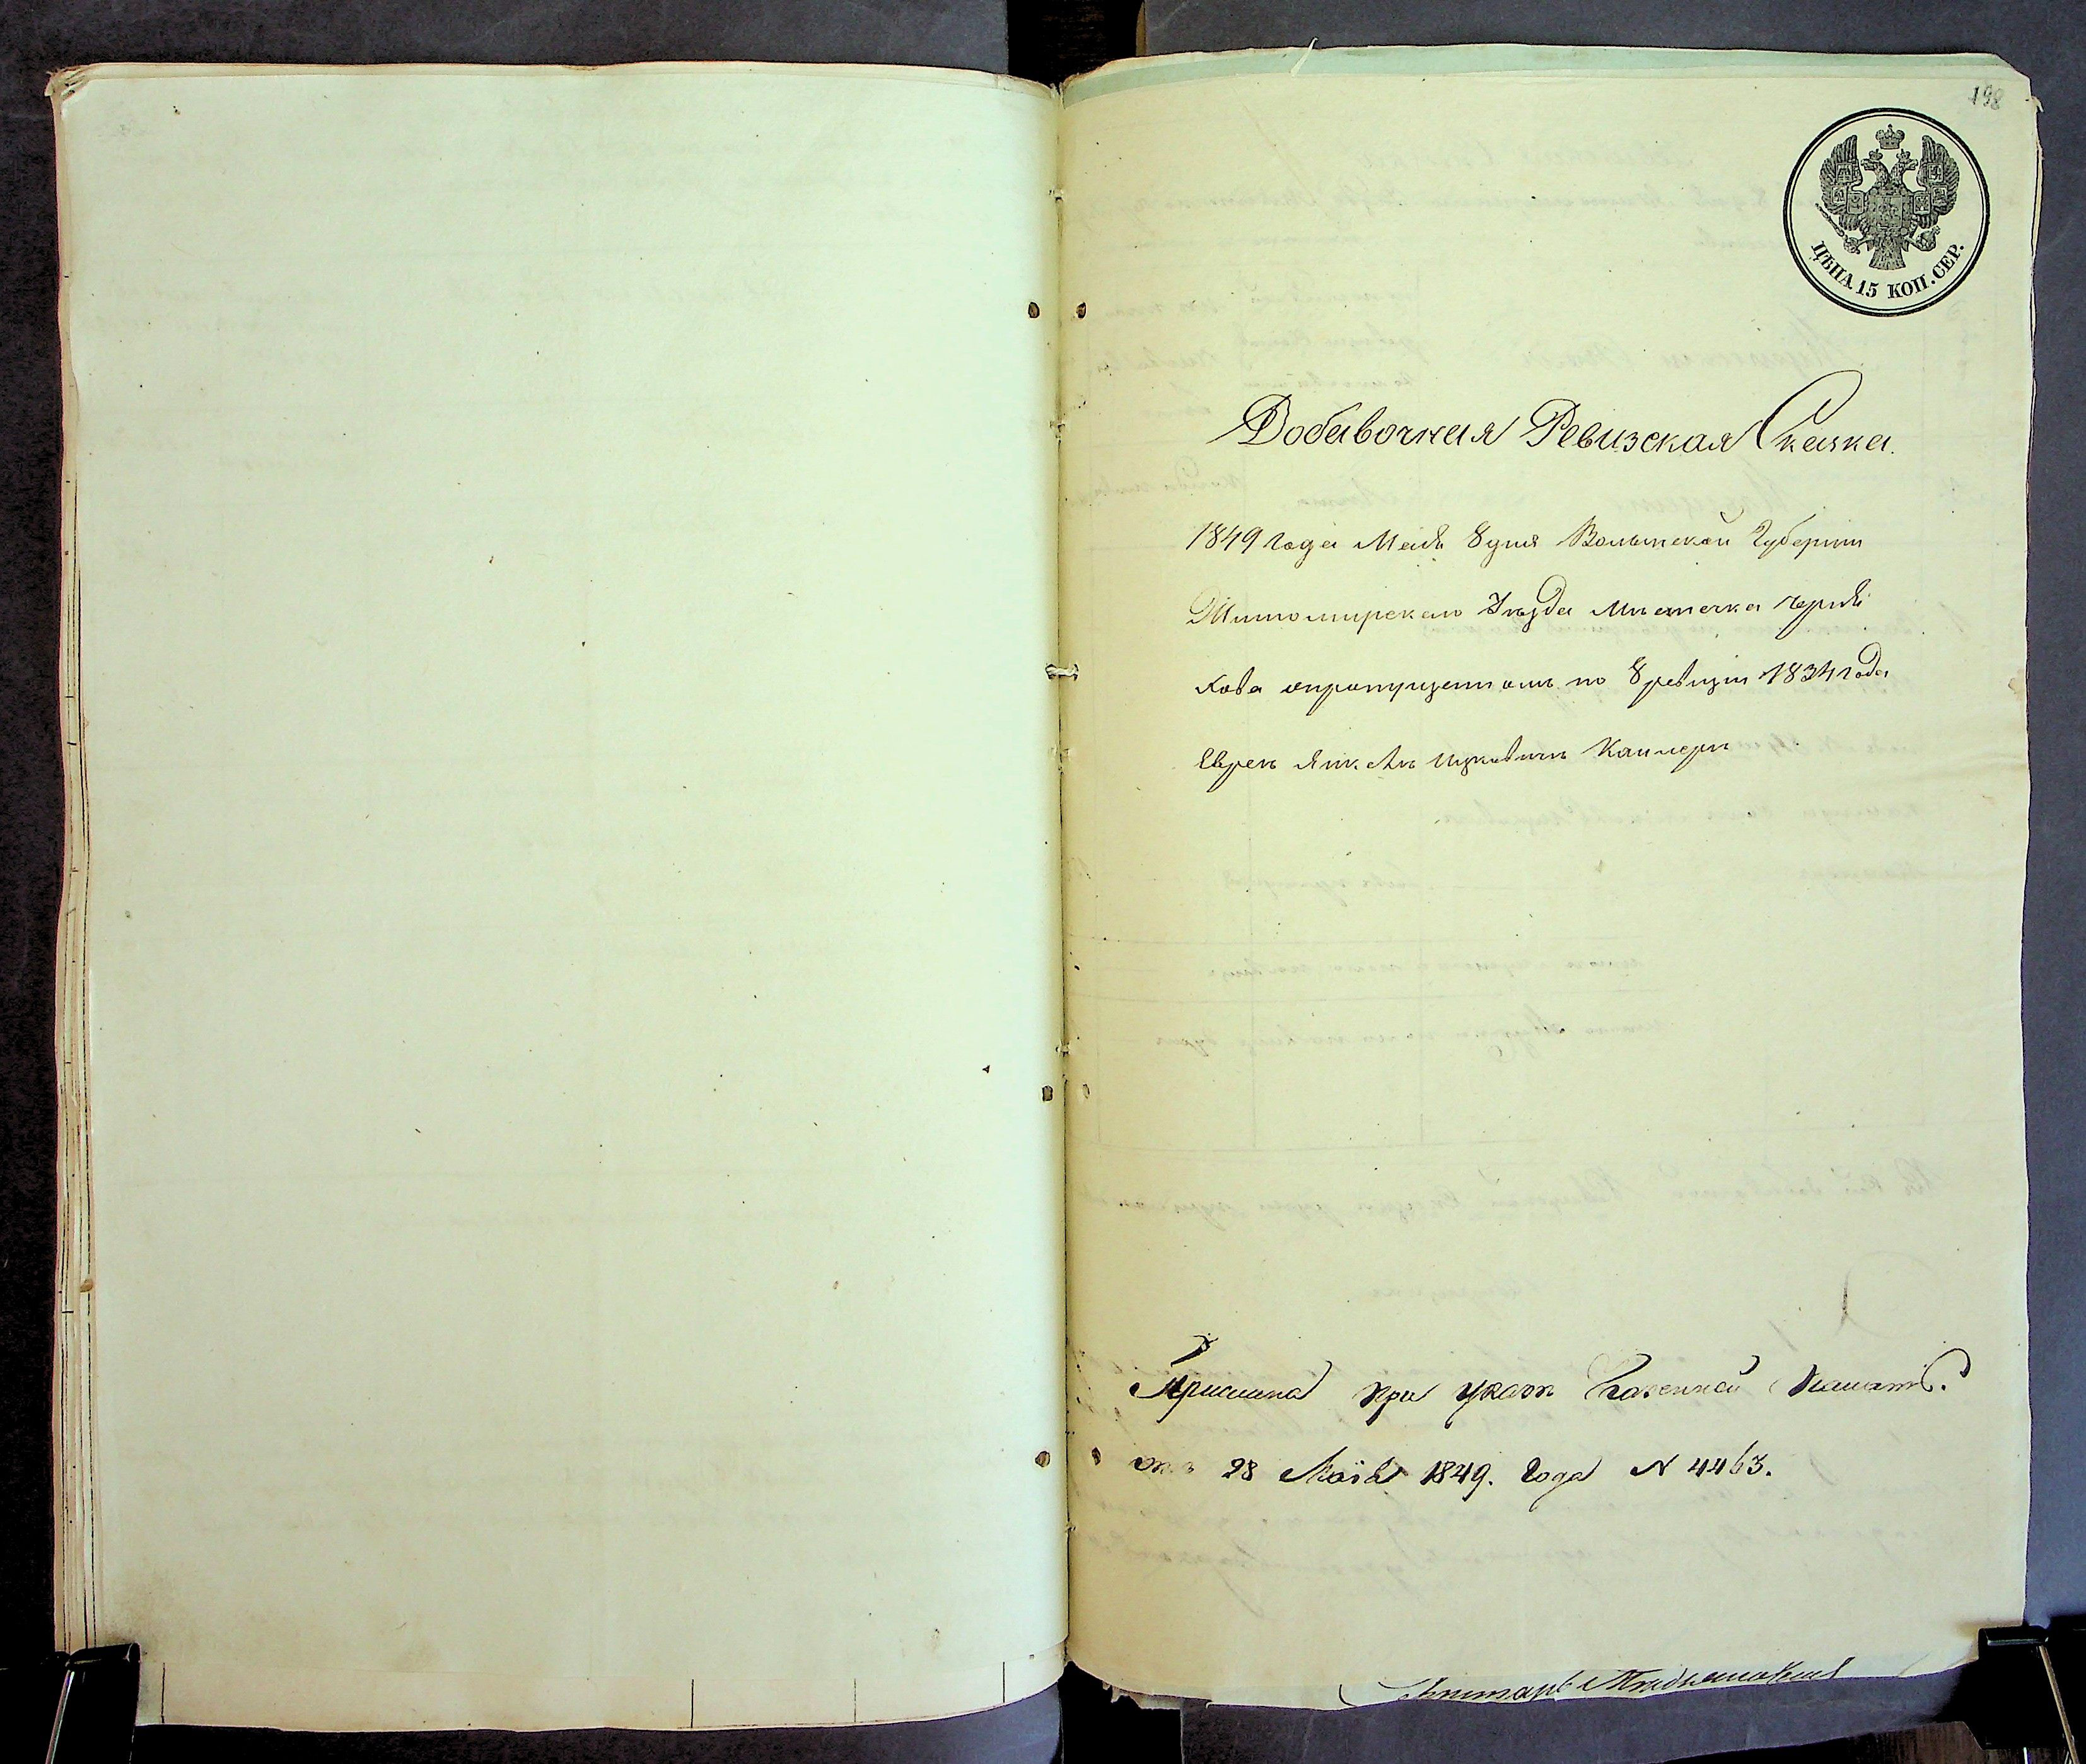 198
ЦѢНА 15 КОП. СЕР.
Добавочная Ревизская Сказка.
1849 года Маія 8 дня Волынской Губерніи
Житомирскаго Уѣзда Мѣстечка Черня
хова о пропущенномъ по 8 ревизіи 1834 года
Еврея Ицковичъ
Прислана при указѣ Казенной Палаты.
отъ 28 Маія 1849. Года N 4463.